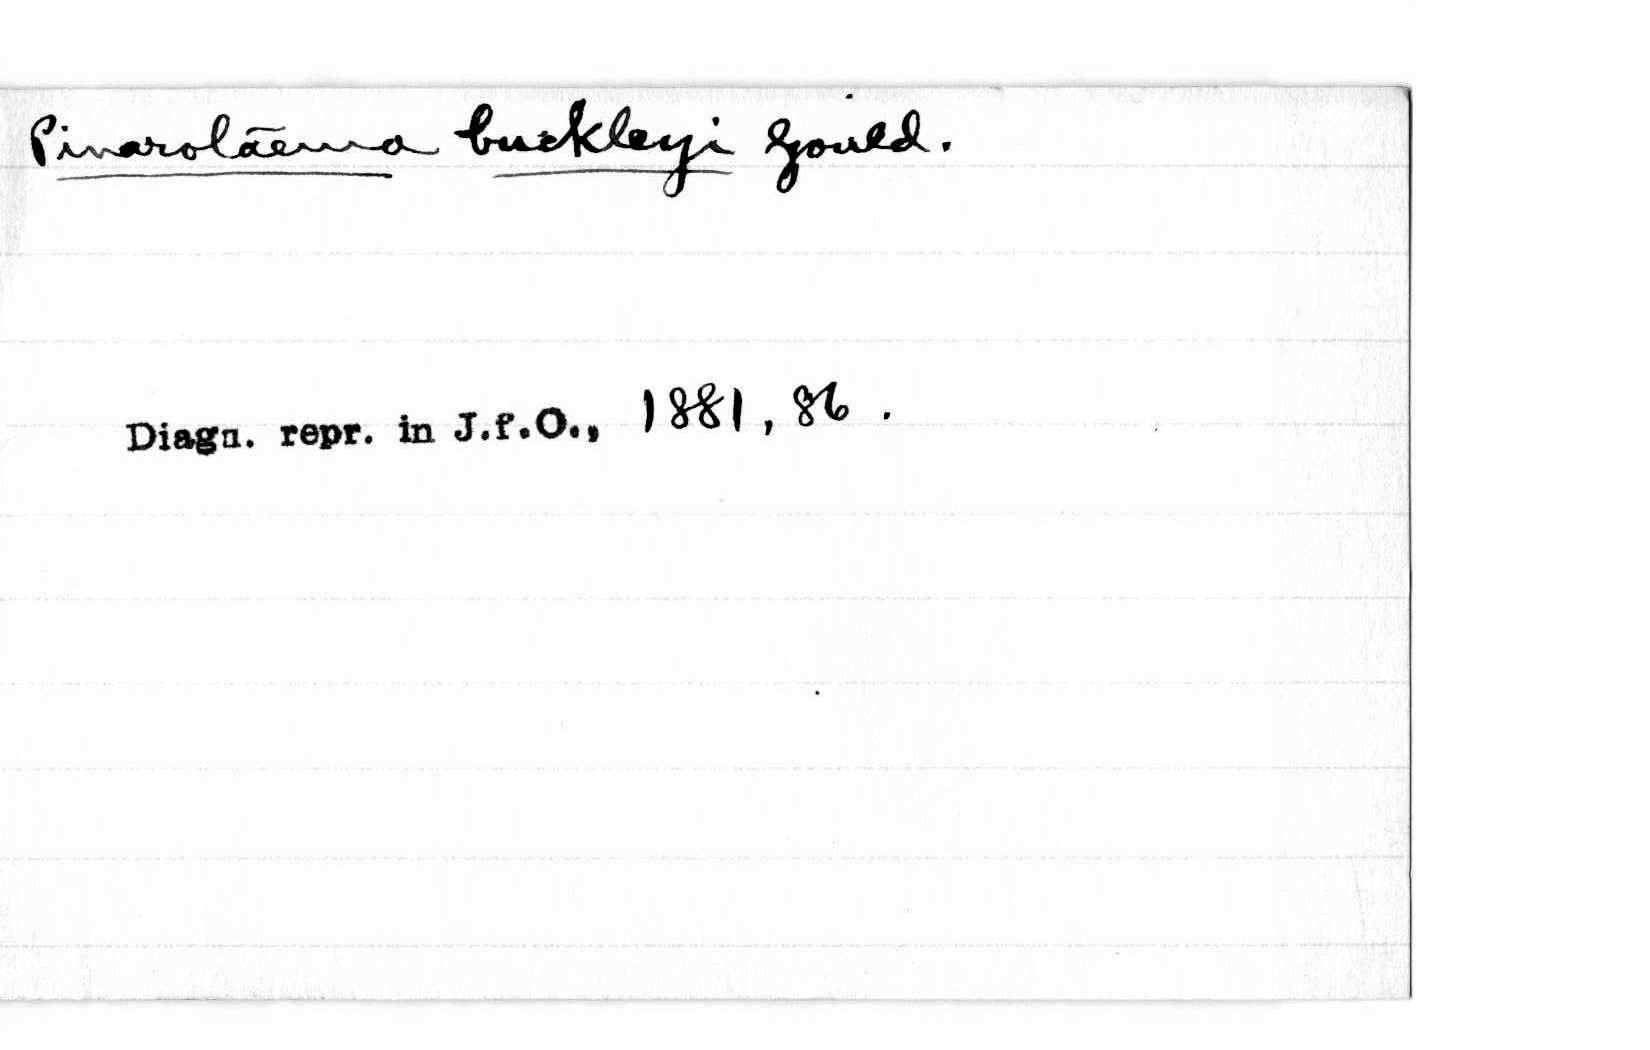 Pinarolaema buckleyi Gould.
Diagn. repr. in J.f.O., 1881, 86.